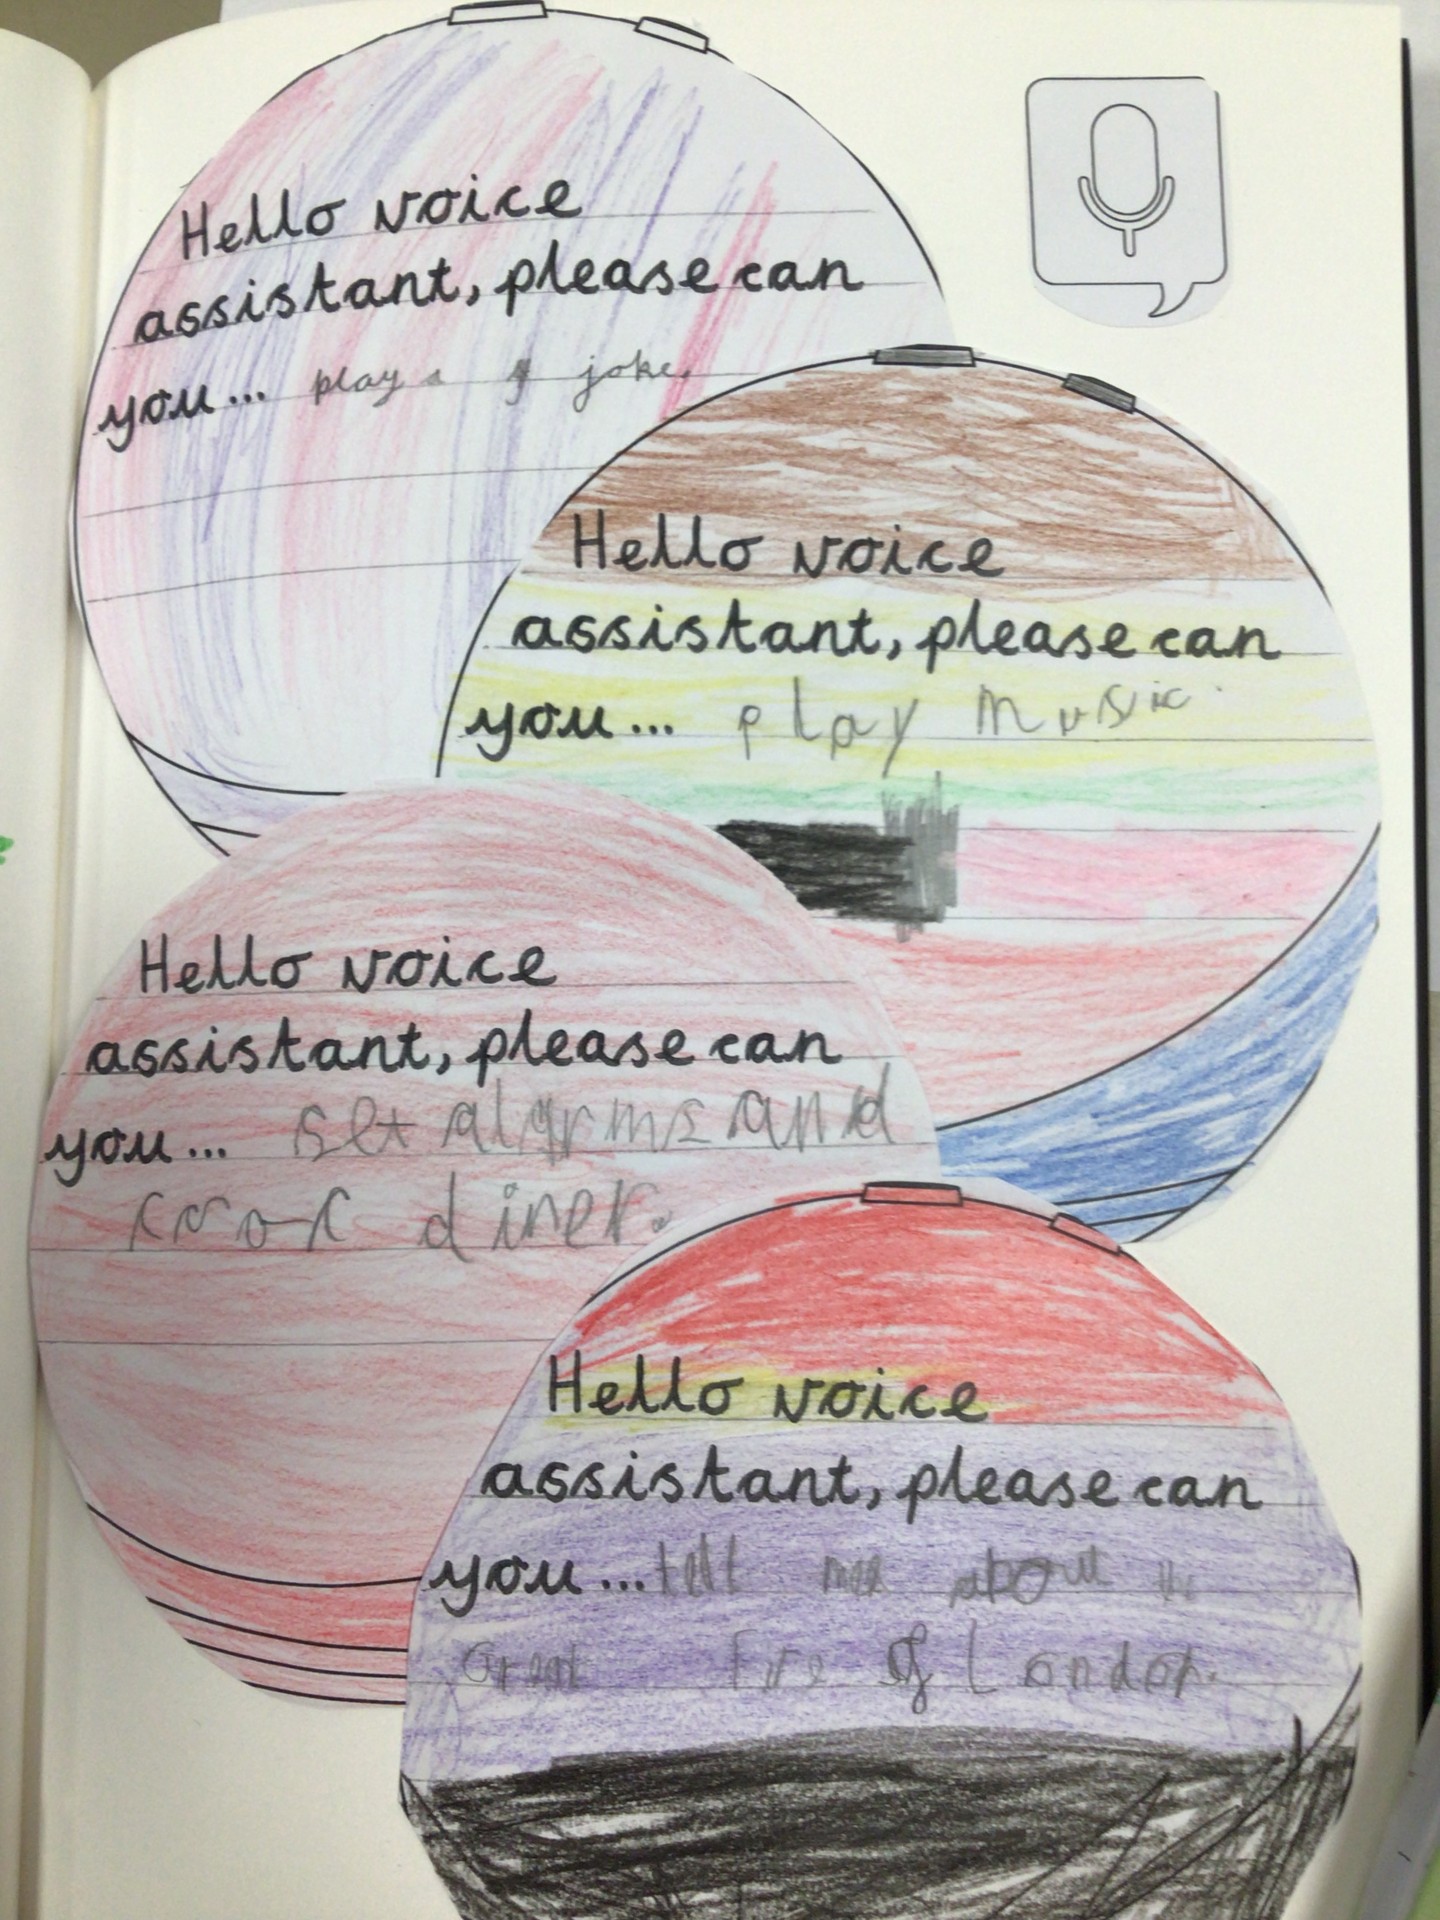 Hello voice
assistant, please can
you... play a joke.
Hello voice
assistant, please can
you... play music.
Hello voice
assistant, please can
you... set alarms and
diner.
Hello voice
assistant, please can
you... tell me about the
Great Fire of London.